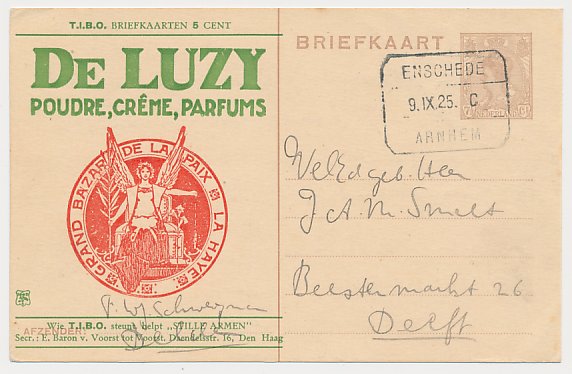 T.I.B.O. BRIEFKAARTEN 5 CENT
DE LUZY
POUDRE, CRÊME, PARFUMS
GRAND BAZAR DE LA PAIX LA HAYE
AFZENDER:
Wie T.I.B.O. steunt helpt „STILLE ARMEN"
Secr.: E. Baron v. Voorst tot Voorst. Daendelsstr. 16, Den Haag
BRIEFKAART
NEDERLAND
ENSCHEDE
9.IX.25. C
ARNHEM
WelEdgeb. Heer
J A. M. Smets
Beestenmarkt 26
Delft